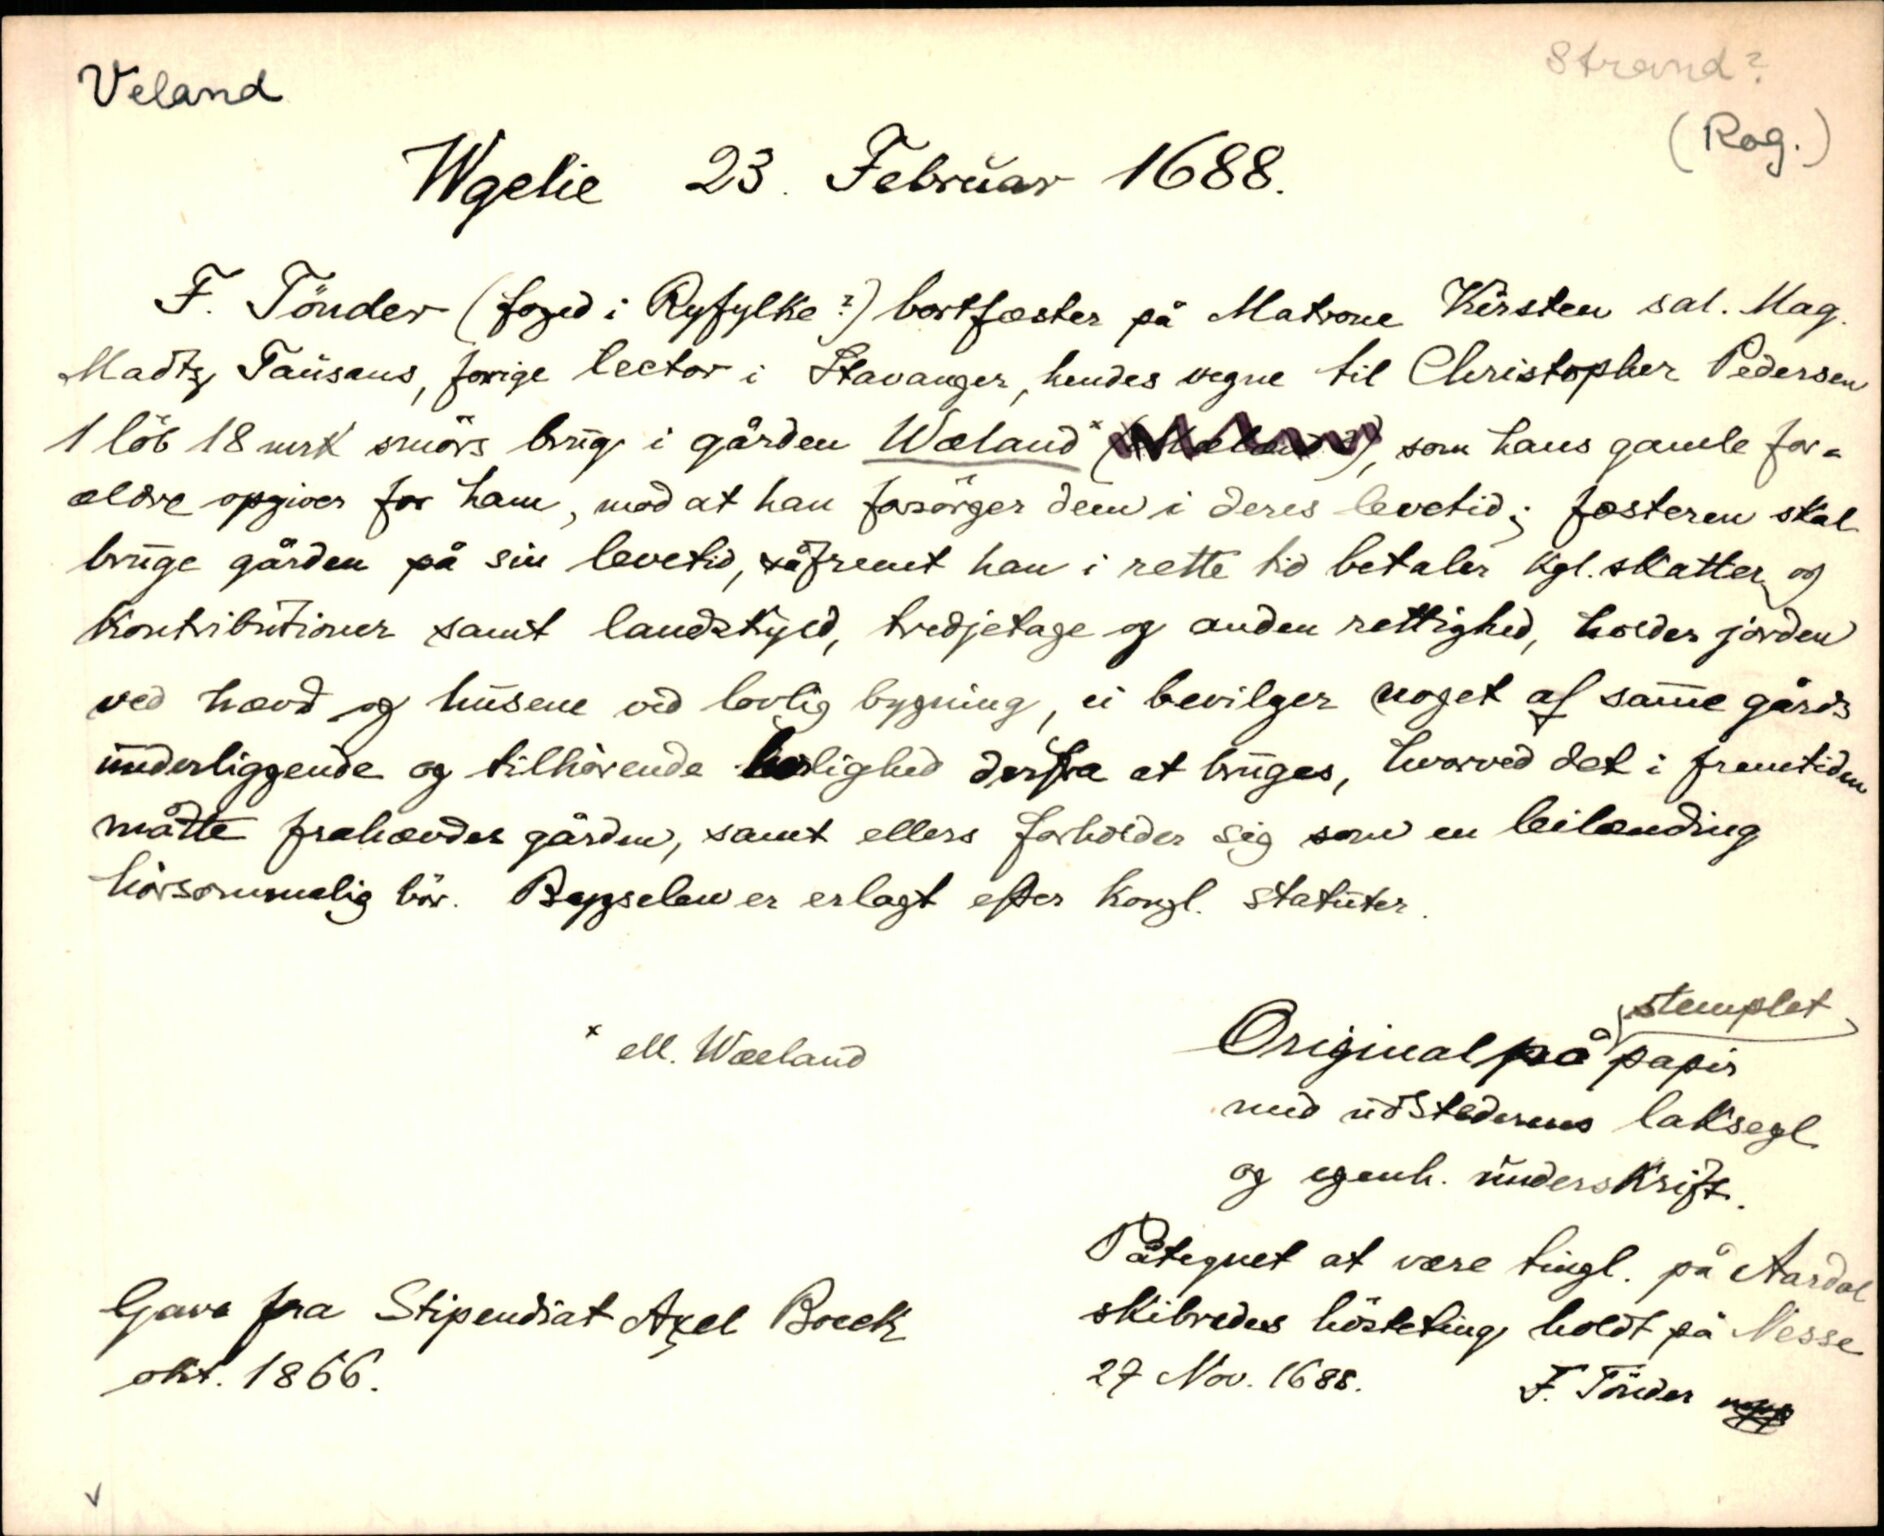 Veland
Strand?
(Rog.)
Wgelie 23. Februar 1688.
F. Tönder (foged i Ryfylke?) bortfæster på Matrone Kirsten sal. Mag.
Madtz Tausans, forige lector i Stavanger, hendes vegne til Christopher Pedersen
1 löb 18 mrk smörs brug i gården Wæland x, som hans gamle for-
ældre opgiver for ham, mod at han forsörger dem i deres levetid; fæsteren skal
bruge gården på sin levetid, såfremt han i rette tid betaler kgl. skatter og
kontributioner samt landskyld, tredjetage og anden rettighed, holder jorden
ved hævd og husene ved lovlig bygning, ei bevilger noget af samme gårds
underliggende og tilhörende herlighed derfra at bruges, hvorved det i fremtiden
måtte frahævdes gården, samt ellers forholder sig som en leilænding
hörsommelig bör. Bygselen er erlagt efter kongl. statuter.
x ell. Wæeland
Original på stemplet papir
med udstederens laksegl
og egenh. underskrift.
Påtegnet at være tingl. på Aardal
skibredes hösteting holdt på Nesse
27 Nov. 1688. F. Tönder mpp
Gave fra Stipendiat Axel Boeck
okt. 1866.